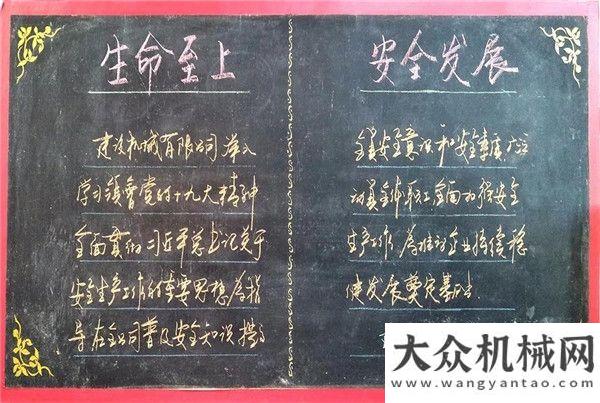 生命至上
建设机械有限公司深入
学习领会党的十九大精神
全面贯彻习近平总书记关于
安全生产工作的重要思想为指
导在全公司普及安全知识提高
安全发展
全员安全意识和安全素质广泛
动员全体职工全面加强安全
生产工作，为推动企业持续稳
健发展奠定基础.
大众机械网
www.wangyantao.com